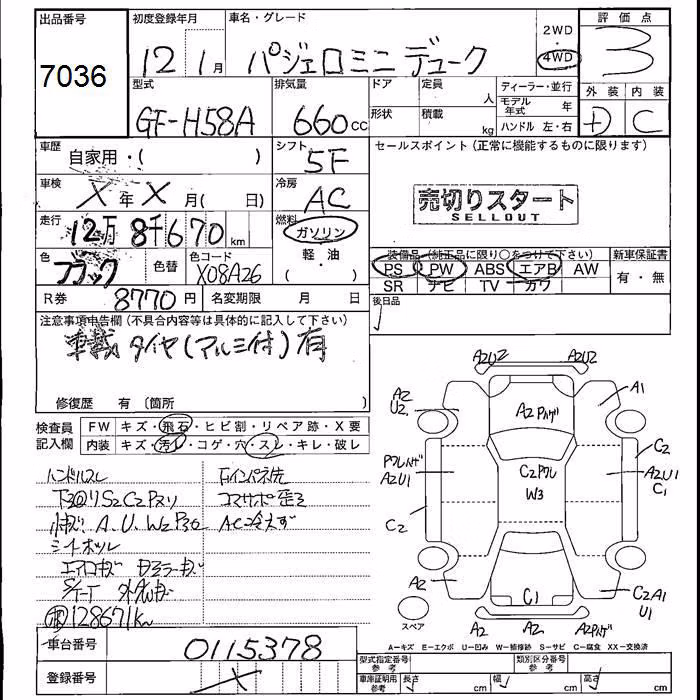 出品番号 初度登録年月 車名・グレード 2WD 評価点
7036 12年 1月 パジェロミニ デューク 4WD 3
型式 排気量 ドア 定員 人 ディーラー・並行 外装 内装
GF-H58A 660cc 形状 積載 kg モデル年式 年 +D C
ハンドル 左・右
車歴 シフト セールスポイント(正常に機能するものに限ります)
自家用・( ) 5F
車検 X年X月( 日) 冷房 AC 売切りスタート
SELLOUT
走行 12万8千670km 燃料 ガソリン
装備品(純正品に限り○をつけて下さい) 新車保証書
色 ブラック 色替 色コード X08A26 軽・油 ( ) PS PW ABS エアB AW 有・無
SR ナビ TV カワ
R券 8770円 名変期限 月 日 後日品
注意事項申告欄(不具合内容等は具体的に記入して下さい)
車載 タイヤ(アルミ付)有
修復歴 有 〔箇所 〕
検査員 FW キズ・飛石・ヒビ割・リペア跡・X要
記入欄 内装 キズ・汚レ・コゲ・穴・スレ・キレ・破レ
ハンドルスレ
下回りS2C2Pヌリ
A.U.W2P36
シートボツレ
エアロキズ
128671km
右インパネ
コマサポ歪ミ
AC冷えず
A2U2 A2U2
A2 U2 A2Pハゲ A1
Pワレハゲ A2U1 C2Pワレ W3 C2 A2U1 C1
C2
A2 C1 C2A1 U1
スペア A2 A2 A2Pハゲ
A=キズ E=エクボ U=凹み W=補修跡 S=サビ C=腐食 XX=交換済
車台番号 0115378
登録番号 X
型式指定番号 参考 類別区分番号 参考
車庫証明用 参考 長さ cm 幅 cm 高さ cm